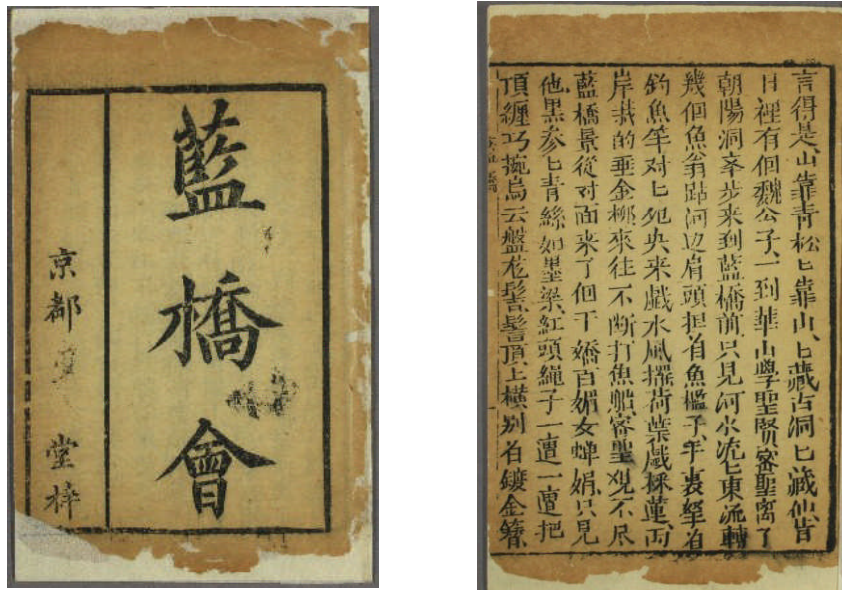 藍橋會
京都 堂梓
言得是山靠青松匕靠山匕藏古洞匕藏仙昔
日裡有個魏公子一到華山學聖賢審聖離了
朝陽洞举步来到藍橋前只見河水流匕東流轉
幾個魚翁跕河边肩頭担自魚檻子手裏拏自
釣魚竿对匕夗央来戲水風擺荷葉戲採蓮两
岸栽的垂金柳來往不断打魚船審聖观不尽
藍橋景從对面来了個千嬌百媚女蝉娟只見
他黒参匕青絲如墨染紅頭繩子一遭一遭把
頂纒巧挽烏云盤花髻髻頂上横别自鍍金簪